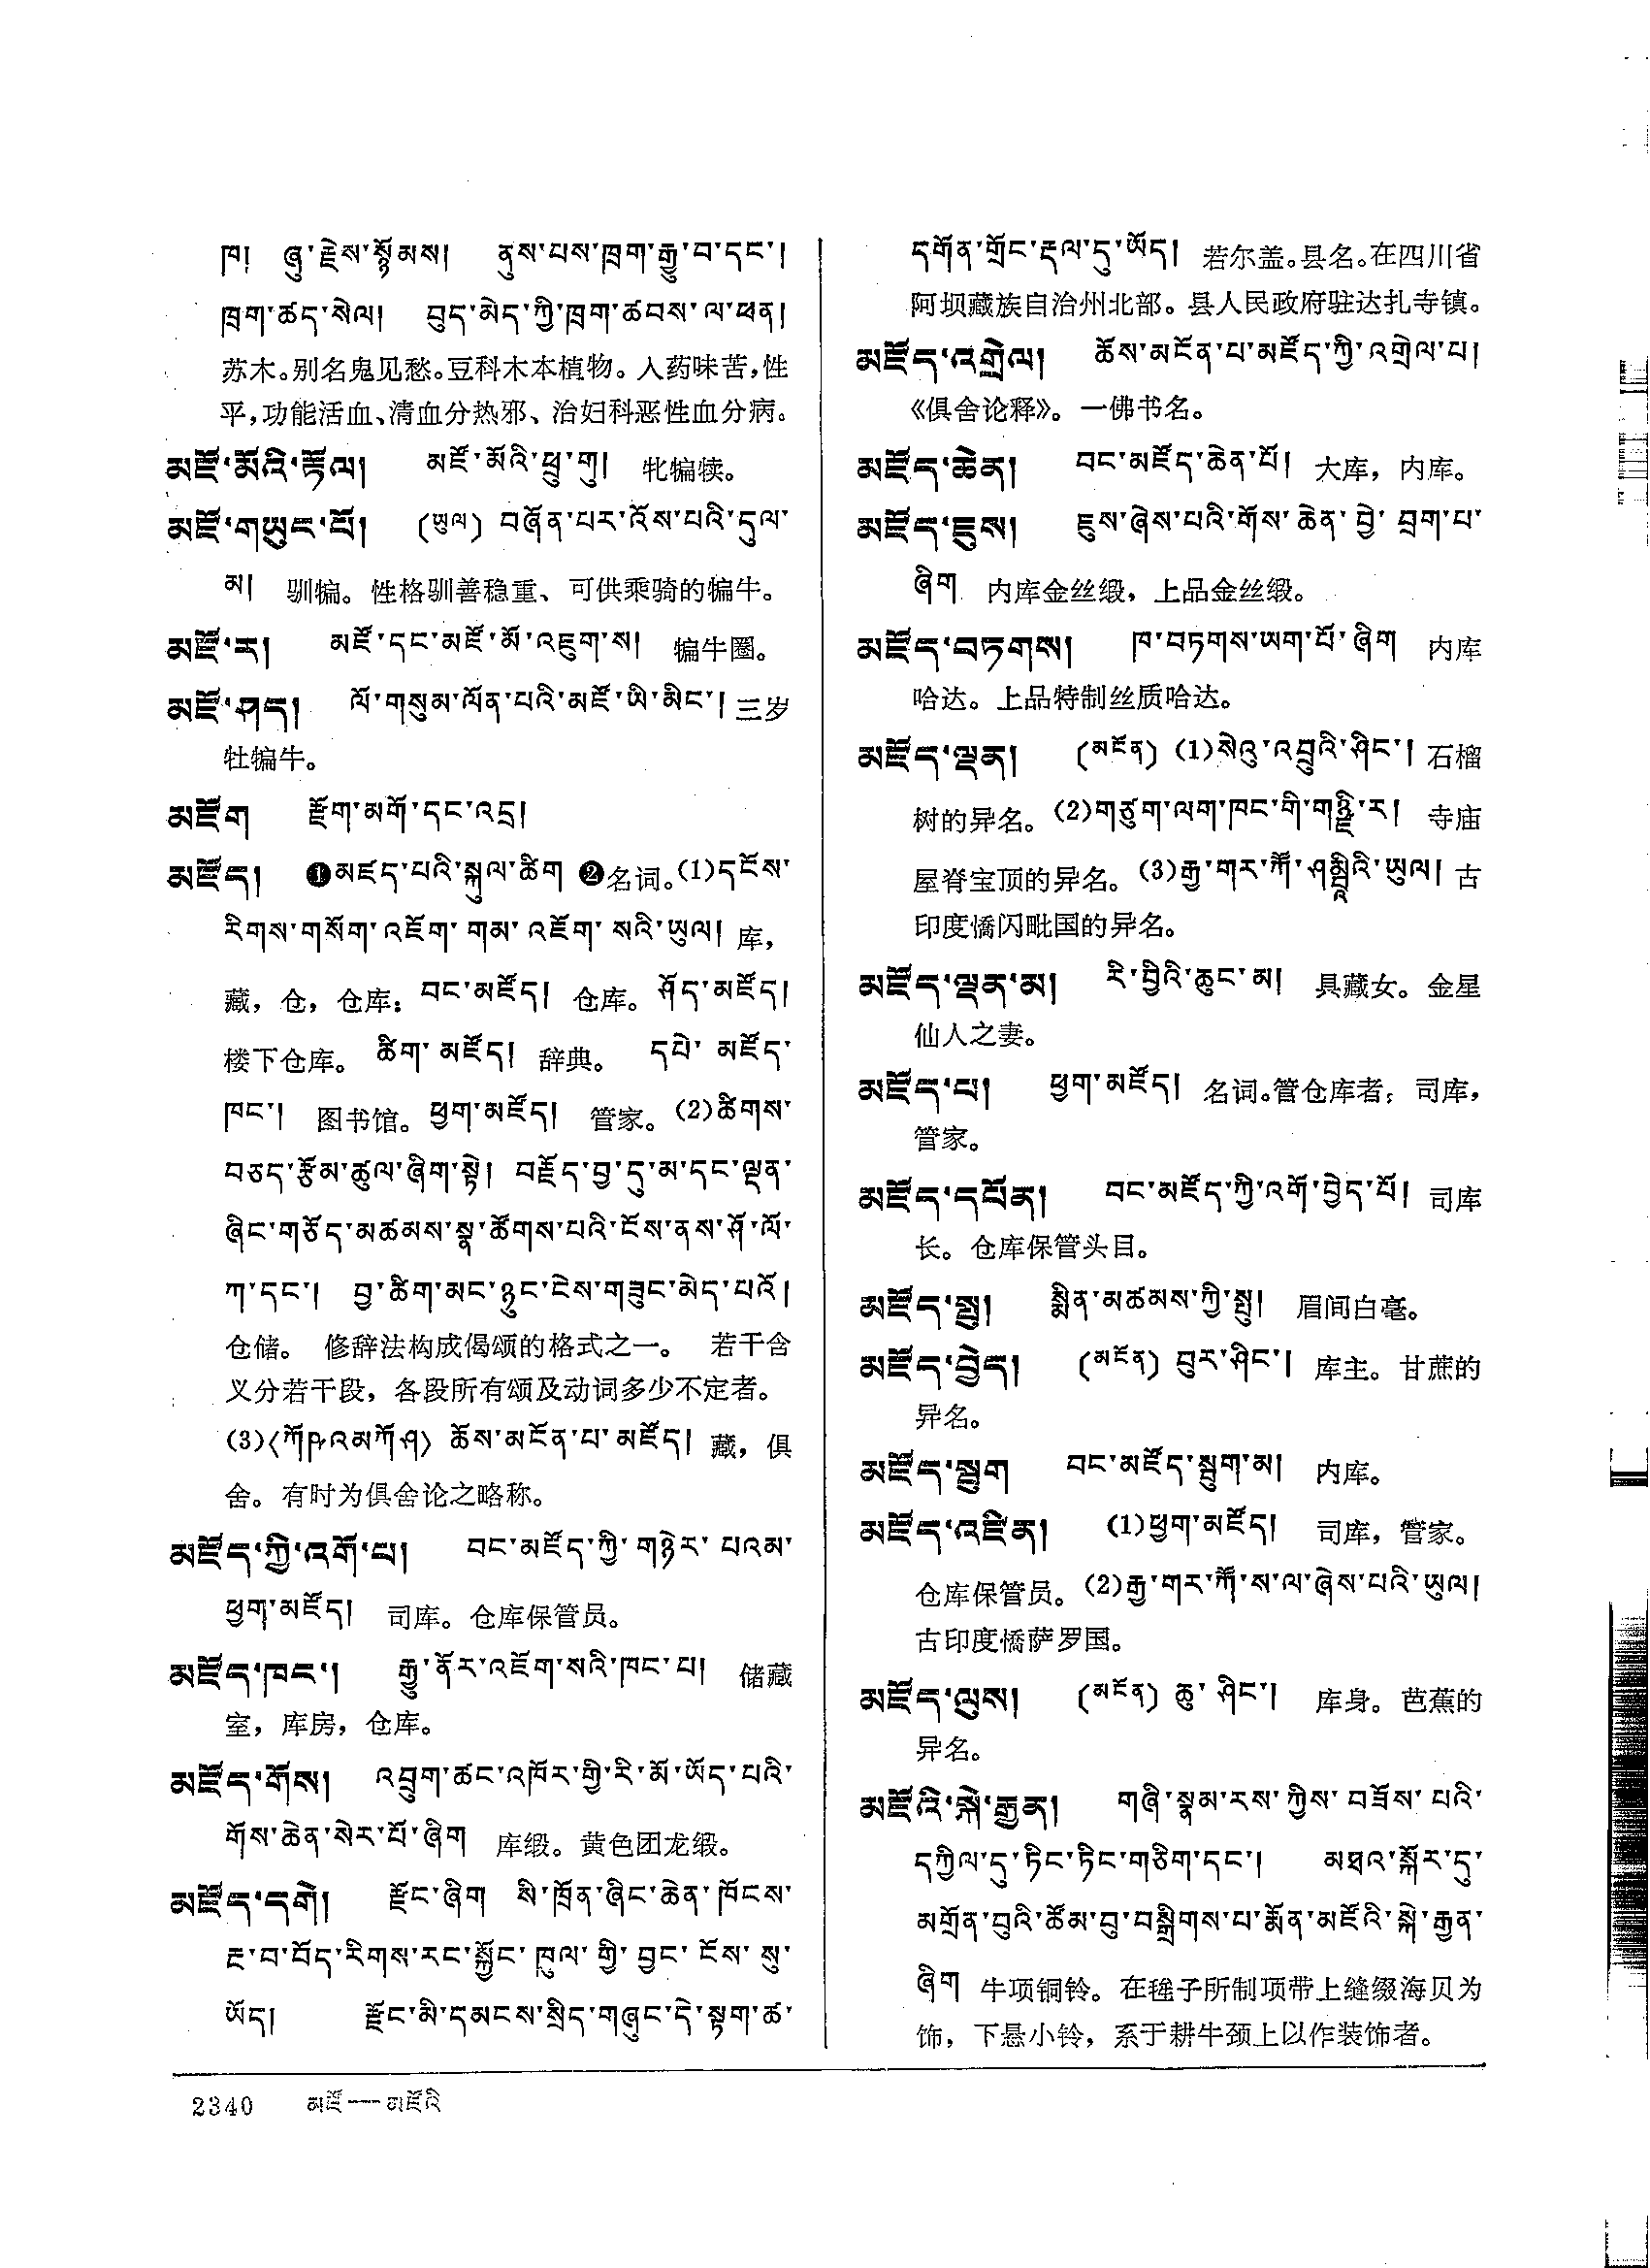 ཁ། ཞུ་རྗེས་སྙོམས། ནུས་པས་ཁྲག་རྒྱུ་བ་དང་།
ཁྲག་ཚད་སེལ། བུད་མེད་ཀྱི་ཁྲག་ཚབས་ལ་ཕན།
苏木。别名鬼见愁。豆科木本植物。入药味苦，性
平，功能活血、清血分热邪、治妇科恶性血分病。
མཛོ་མོའི་ཏོལ། མཛོ་མོའི་ཕྲུ་གུ། 牝犏犊。
མཛོ་གཡུང་པོ། (ཡུལ) བཞོན་པར་འོས་པའི་དུལ་
མ། 驯犏。性格驯善稳重、可供乘骑的犏牛。
མཛོ་ར། མཛོ་དང་མཛོ་མོ་འཇུག་ས། 犏牛圈。
མཛོ་ཤད། ལོ་གསུམ་ལོན་པའི་མཛོ་ཡི་མིང་། 三岁
牡犏牛。
མཛོག རྫོག་མགོ་དང་འདྲ།
མཛོད། ❶མཛད་པའི་སྐུལ་ཚིག ❷名词。(1)དངོས་
རིགས་གསོག་འཇོག་གམ་འཇོག་སའི་ཡུལ། 库，
藏，仓，仓库：བང་མཛོད། 仓库。ཤོད་མཛོད།
楼下仓库。ཚིག་མཛོད། 辞典。དཔེ་མཛོད་
ཁང་། 图书馆。ཕྱག་མཛོད། 管家。(2)ཚིགས་
བཅད་རྩོམ་ཚུལ་ཞིག་སྟེ། བརྗོད་བྱ་དུ་མ་དང་ལྡན་
ཞིང་གཅོད་མཚམས་སྣ་ཚོགས་པའི་ངོས་ནས་ཤོ་ལོ་
ཀ་དང་། བྱ་ཚིག་མང་ཉུང་ངེས་གཟུང་མེད་པའོ།
仓储。 修辞法构成偈颂的格式之一。 若干含
义分若干段，各段所有颂及动词多少不定者。
(3)〈ཀོཥ་འམ་ཀོཤ〉 ཆོས་མངོན་པ་མཛོད། 藏，俱
舍。有时为俱舍论之略称。
མཛོད་ཀྱི་འགོ་པ། བང་མཛོད་ཀྱི་གཉེར་པའམ་
ཕྱག་མཛོད། 司库。仓库保管员。
མཛོད་ཁང་། རྒྱུ་ནོར་འཇོག་སའི་ཁང་པ། 储藏
室，库房，仓库。
མཛོད་གོས། འབྲུག་ཚང་འཁོར་གྱི་རི་མོ་ཡོད་པའི་
གོས་ཆེན་སེར་པོ་ཞིག 库缎。黄色团龙缎。
མཛོད་དགེ། རྫོང་ཞིག སི་ཁྲོན་ཞིང་ཆེན་ཁོངས་
རྔ་བ་བོད་རིགས་རང་སྐྱོང་ཁུལ་གྱི་བྱང་ངོས་སུ་
ཡོད། རྫོང་མི་དམངས་སྲིད་གཞུང་དེ་སྟག་ཚ་
དགོན་གྲོང་རྡལ་དུ་ཡོད། 若尔盖。县名。在四川省
阿坝藏族自治州北部。县人民政府驻达扎寺镇。
མཛོད་འགྲེལ། ཆོས་མངོན་པ་མཛོད་ཀྱི་འགྲེལ་པ།
《俱舍论释》。一佛书名。
མཛོད་ཆེན། བང་མཛོད་ཆེན་པོ། 大库，内库。
མཛོད་ཇུས། ཇུས་ཞེས་པའི་གོས་ཆེན་བྱེ་བྲག་པ་
ཞིག 内库金丝缎，上品金丝缎。
མཛོད་བཏགས། ཁ་བཏགས་ཡག་པོ་ཞིག 内库
哈达。上品特制丝质哈达。
མཛོད་ལྡན། (མངོན) (1)སེའུ་འབྲུའི་ཤིང་། 石榴
树的异名。(2)གཙུག་ལག་ཁང་གི་གཉྫི་ར། 寺庙
屋脊宝顶的异名。(3)རྒྱ་གར་ཀོ་ཤམྦཱིའི་ཡུལ། 古
印度憍闪毗国的异名。
མཛོད་ལྡན་མ། རི་བྱིའི་ཆུང་མ། 具藏女。金星
仙人之妻。
མཛོད་པ། ཕྱག་མཛོད། 名词。管仓库者；司库，
管家。
མཛོད་དཔོན། བང་མཛོད་ཀྱི་འགོ་བྱེད་པོ། 司库
长。仓库保管头目。
མཛོད་སྤུ། སྨིན་མཚམས་ཀྱི་སྤུ། 眉间白毫。
མཛོད་བྱེད། (མངོན) བུར་ཤིང་། 库主。甘蔗的
异名。
མཛོད་སྦུག བང་མཛོད་སྦུག་མ། 内库。
མཛོད་འཛིན། (1)ཕྱག་མཛོད། 司库，管家。
仓库保管员。(2)རྒྱ་གར་ཀོ་ས་ལ་ཞེས་པའི་ཡུལ།
古印度憍萨罗国。
མཛོད་ལུས། (མངོན) ཆུ་ཤིང་། 库身。芭蕉的
异名。
མཛོའི་སྐེ་རྒྱན། གཞི་སྣམ་རས་ཀྱིས་བཟོས་པའི་
དཀྱིལ་དུ་ཏིང་ཏིང་གཅིག་དང་། མཐའ་སྐོར་དུ་
མགྲོན་བུའི་ཚོམ་བུ་བསྒྲིགས་པ་རྨོན་མཛོའི་སྐེ་རྒྱན་
ཞིག 牛项铜铃。在氆子所制项带上缝缀海贝为
饰，下悬小铃，系于耕牛颈上以作装饰者。
2340 མཛོ—མཛོའི